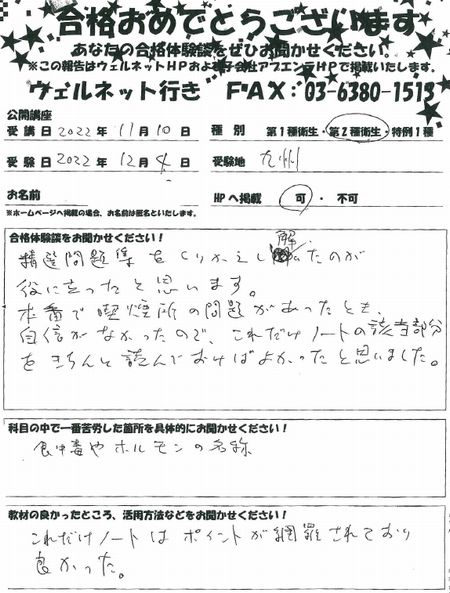 合格おめでとうございます
あなたの合格体験談をぜひお聞かせください。
※この報告はウェルネットHPおよび子会社アプエンテHPで掲載いたします。
ウェルネット行き FAX:03-6380-1513
公開講座
受講日 2022年 11月 10日 種別 第1種衛生・第2種衛生・特例1種
受験日 2022年 12月 4日 受験地 九州
お名前 HPへ掲載 可・不可
※ホームページへ掲載の場合、お名前は匿名といたします。
合格体験談をお聞かせください!
精選問題集をくりかえし解いたのが
役に立ったと思います。
本番で喫煙所の問題があったとき、
自信がなかったので、これだけノートの該当部分
をきちんと読んでおけばよかったと思いました。
科目の中で一番苦労した箇所を具体的にお聞かせください!
食中毒やホルモンの名称
教材の良かったところ、活用方法などをお聞かせください!
これだけノートはポイントが網羅されており
良かった。